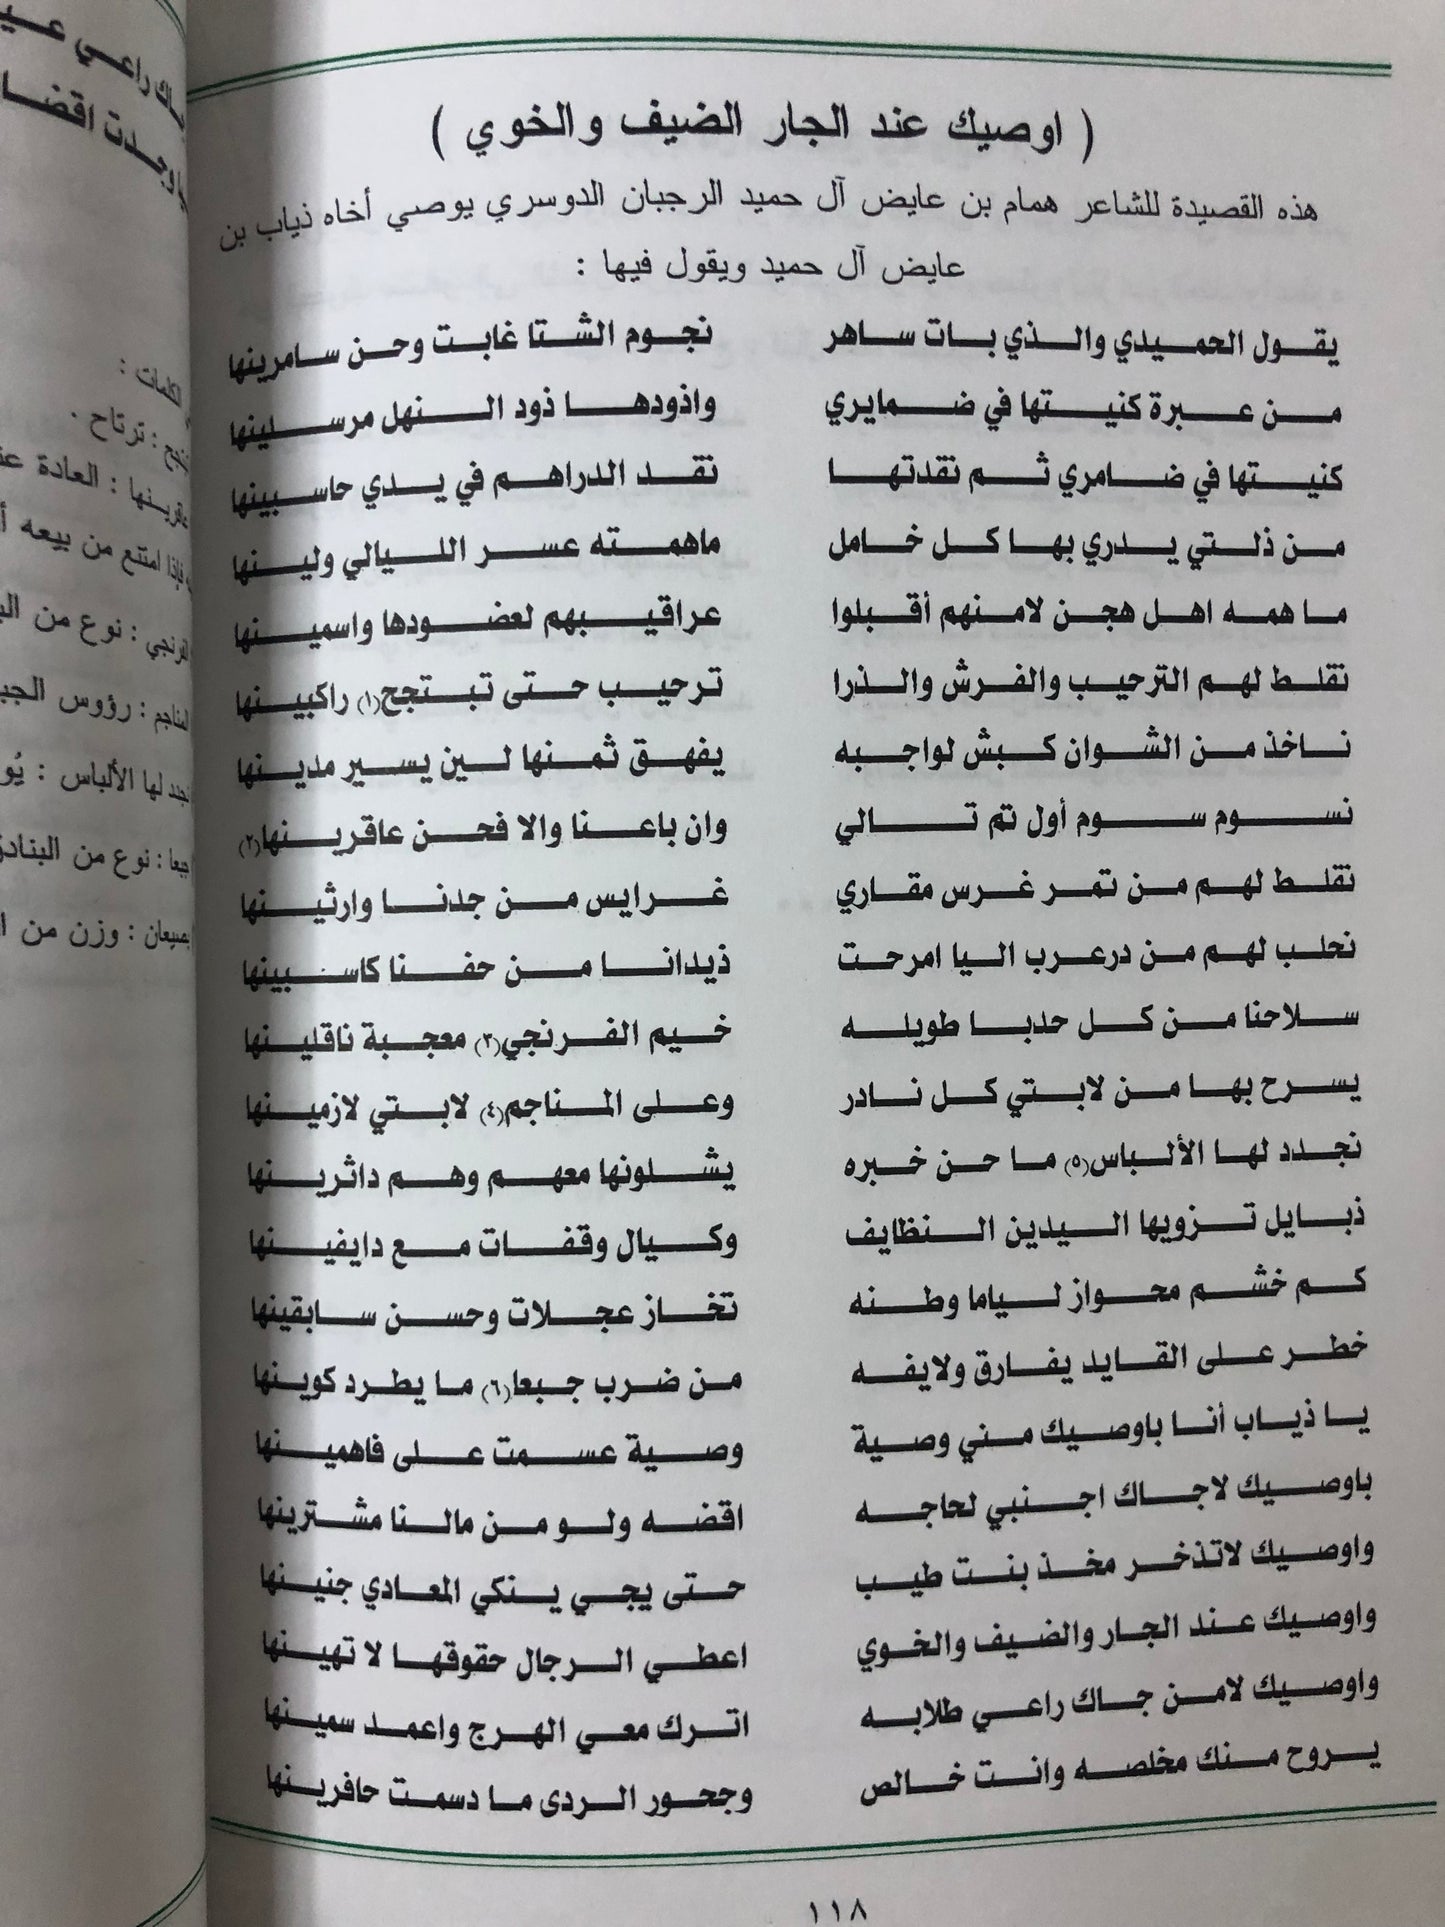 ( اوصيك عند الجار الضيف والخوي )
هذه القصيدة للشاعر همام بن عايض آل حميد الرجبان الدوسري يوصي أخاه ذياب بن
عايض آل حميد ويقول فيها :
يقول الحميدي والذي بات ساهر نجوم الشتا غابت وحن سامرينها
من عبرة كنيتها في ضمايري واذودها ذود النهل مرسلينها
كنيتها في ضامري ثم نقدتها نقد الدراهم في يدي حاسبينها
من ذلتي يدري بها كل خامل ماهمته عسر الليالي ولينها
ما همه اهل هجن لامنهم أقبلوا عراقيبهم لعضودها واسمينها
نقلط لهم الترحيب والفرش والذرا ترحيب حتى تبتجح(١) راكبينها
ناخذ من الشوان كبش لواجبه يفهق ثمنها لين يسير مدينها
نسوم سوم أول ثم تالي وان باعنا والا فحن عاقرينها(٢)
نقلط لهم من تمر غرس مقاري غرايس من جدنا وارثينها
نحلب لهم من درعرب اليا امرحت ذيدانا من حفنا كاسبينها
سلاحنا من كل حدبا طويله خيم الفرنجي(٣) معجبة ناقلينها
يسرح بها من لابتي كل نادر وعلى المناجم(٤) لابتي لازمينها
نجدد لها الألباس(٥) ما حن خبره يشلونها معهم وهم داثرينها
ذبايل تزويها اليدين النظايف وكيال وقفات مع دايفينها
كم خشم محواز لياما وطنه تخاز عجلات وحسن سابقينها
خطر على القايد يفارق ولايفه من ضرب جبعا(٦) ما يطرد كوينها
يا ذياب أنا باوصيك مني وصية وصية عسمت على فاهمينها
باوصيك لاجاك اجنبي لحاجه اقضه ولو من مالنا مشترينها
واوصيك لاتذخر مخذ بنت طيب حتى يجي ينكي المعادي جنينها
واوصيك عند الجار والضيف والخوي اعطي الرجال حقوقها لا تهينها
واوصيك لامن جاك راعي طلابه اترك معي الهرج واعمد سمينها
يروح منك مخلصه وانت خالص وجحور الردى ما دسمت حافرينها
١١٨
الكلمات :
ترتاح .
عاقرينها : العادة
فإذا امتنع من بيعه
الفرنجي : نوع من
المناجم : رؤوس
نجدد لها الألباس :
جبعا : نوع من البنادق
بصيعان : وزن من